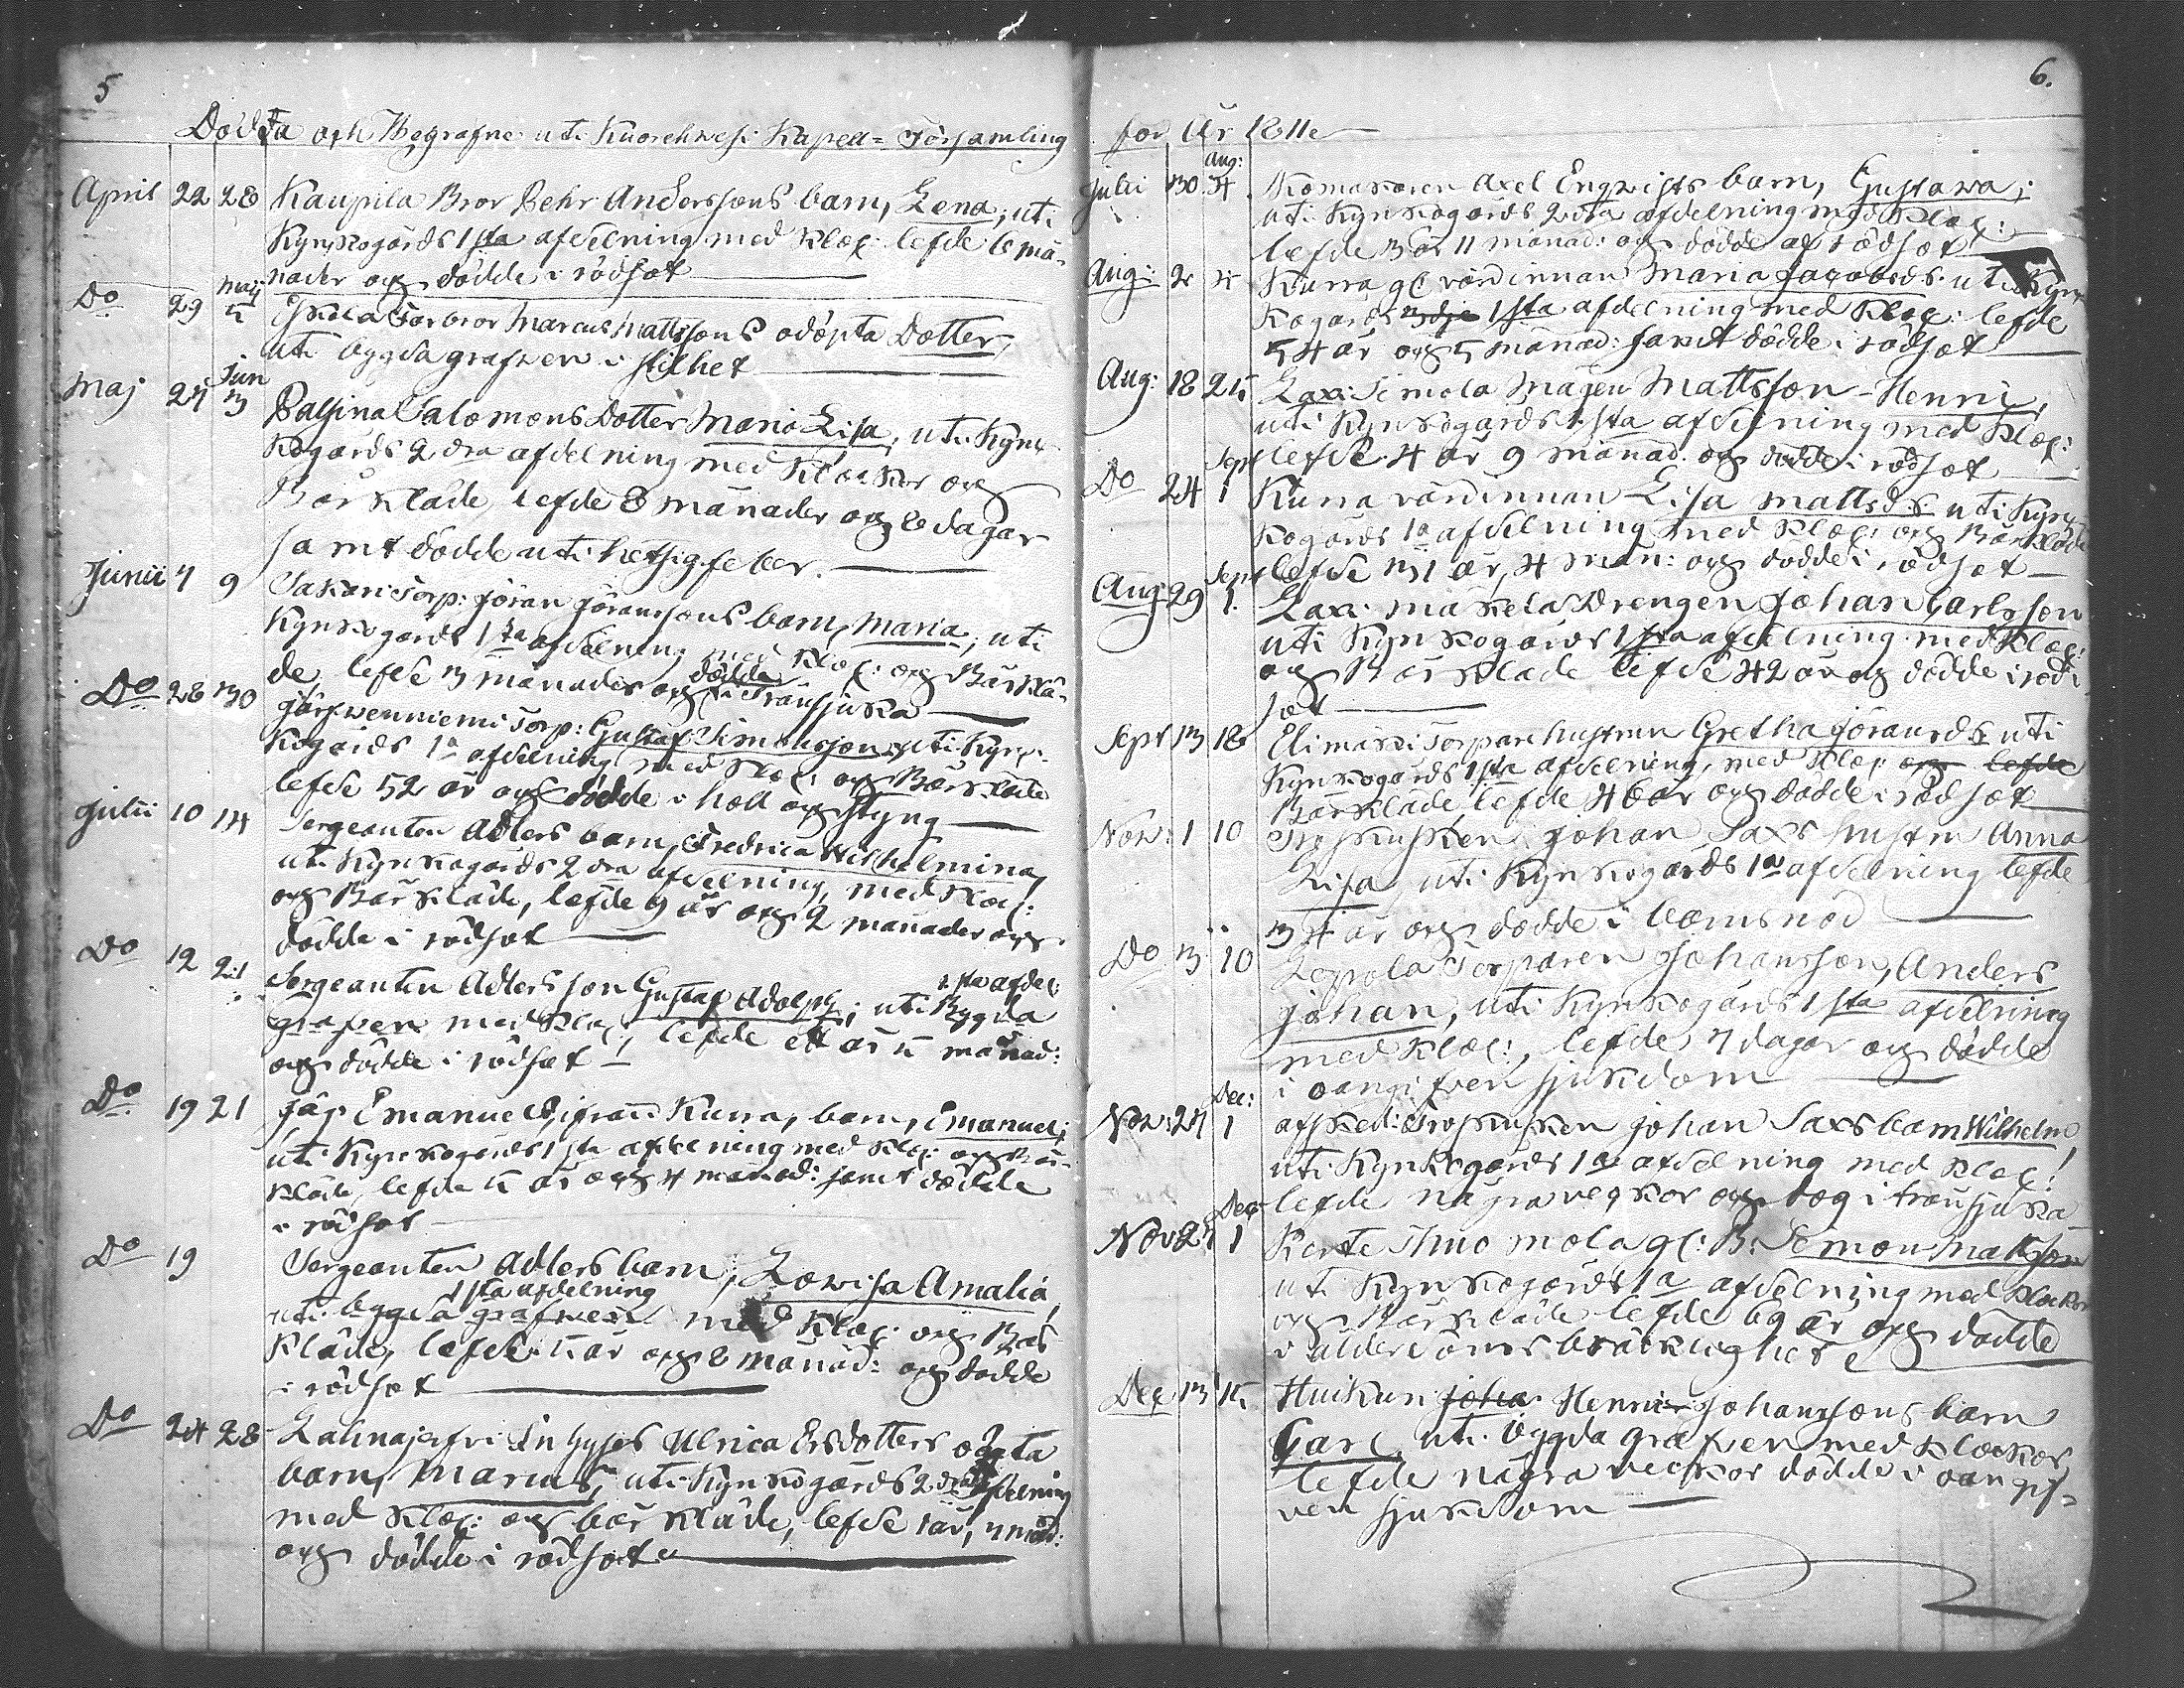 5
Dödda och Begrafne uti Kuorehwesi Kapell-Församling
April 22 28 Kaupila Bror Pehr Anderssons barn, Lena, uti
Kyrkogårds 1sta afdelning med Kloc: lefde 6 må-
nader och dödde i rödsot
Do 29 Maij 5 Eskola Farbror Marcus Mattssons odöpta Dotter,
uti bygda grafwen i stillhet
Maj 27 Jun 3 Salomons Dotter Maria Lisa, uti Kyrk-
kogårds 2dra afdelning med Klockor och
Bårkläde, lefde 8 månader och 6 dagar
samt dödde uti hetsig feber.
Junii 7 9 Sakari Torp: Jöran Jöranssons barn, Maria, uti
Kyrkogårds 1sta afdelning med Kloc: och Bårklä-
de lefde 3 månader och dödde i Trånsjuka
Do 28 30 Järfwenniemi Torp: Gustaf Simonsson, uti Kyrk-
kogårds 1a afdelning med Kloc: och Bårkläde
lefde 52 år och dödde i håll och styng
Julii 10 14 Sergeanten Adlers barn, Fredrica Wilhelmina,
uti Kyrkogårds 2dra afdelning, med Kloc:
och Bårkläde, lefde 9 år och 2 månader och
dödde i rödsot
Do 12 21 Sergeanten Adlers son Gustaf Adolph; uti Bygda
1sta afdel:
grafven med Kloc:, lefde ett år 5 månad:
och dödde i rödsot
Do 19 21 Emanuels, ifrån Kurra, barn, Emanuel,
uti Kyrkogårds 1sta afdelning med Kloc: och Bår-
kläde, lefde 5 år och 4 månad: samt dödde
i rödsot
Do 19 Sergeanten Adlers barn, Lowisa Amalia,
1sta afdelning
uti bygda grafwen med Kloc: och Bår
kläde, lefde 5 år och 8 månad: och dödde
i rödsot
Do 24 28 Inhyses Ulrica Ersdotters oägta
barn, Marcus, uti Kyrkogårds 2dra afdelning
med Kloc: och bårkläde, lefde 1 år, 7 mån:
och dödde i rödsot
6.
för År 1811
Julii 30 Aug: 4 Axel Engwists barn, Gustawa,
uti Kyrkogårds 2dra afdelning med Kloc:
lefde 3 år 11 månad: och dödde af rödsot
Aug: 2 4 Kurra gl värdinnan Maria Jacobsd: uti Kyrk
kogårds 3dje 1sta afdelning med Kloc: lefde
54 år och 5 månad: samt dödde i rödsot
Aug: 18 25 Lax: Simola Mågen Mattsson Henric,
uti Kyrkogårds 1sta afdelning med Kloc:
lefde 4 år 9 månad. och dödde i rödsot
Do 24 Sept 1 Kurra värdinnan Lisa Mattsd: uti Kyrk
kogårds 1a afdelning med Kloc: och Bårkläde
lefde 31 år, 4 mån: och dödde i rödsot
Aug: 29 Sept 1. Lax: Mäkelä Drengen Johan Carlsson
uti Kyrkogårds 1sta afdelning med Kloc:
och Bårkläde lefde 42 år och dödde i röd-
sot
Sept 13 18 Elimäki Torpare hustrun Gretha Jöransd: uti
Kyrkogårds 1sta afdelning, med Kloc: och lefde
Bårkläde, lefde 46 år och dödde i rödsot
Nov: 1 10 Johan Saxs hustru Anna
Lisa, uti Kyrkogårds 1a afdelning lefde
34 år och dödde i barnsnöd
Do 3 10 Torparen Johansson, Anders
Johan, uti Kyrkogårds 1sta afdelning
med Kloc:, lefde 7 dagar och dödde
i oangifven sjukdom
Nov: 27 Dec: 1 afsked: Johan Saxs barn Wilhelm,
uti Kyrkogårds 1a afdelning med Kloc:
lefde några veckor och dog i trånsjuka
Nov 27 Dec 1 gl: B: Simon Mattsson
uti Kyrkogårds 1a afdelning med Klockor
och Bårkläde lefde 69 år och dödde
i ålderdoms bräcklighet
Dec 13 15 Huikun Joha Henric Johanssons barn
Carl, uti bygda grafven med Klockor
lefde några veckor dödde i oangif-
ven sjukdom